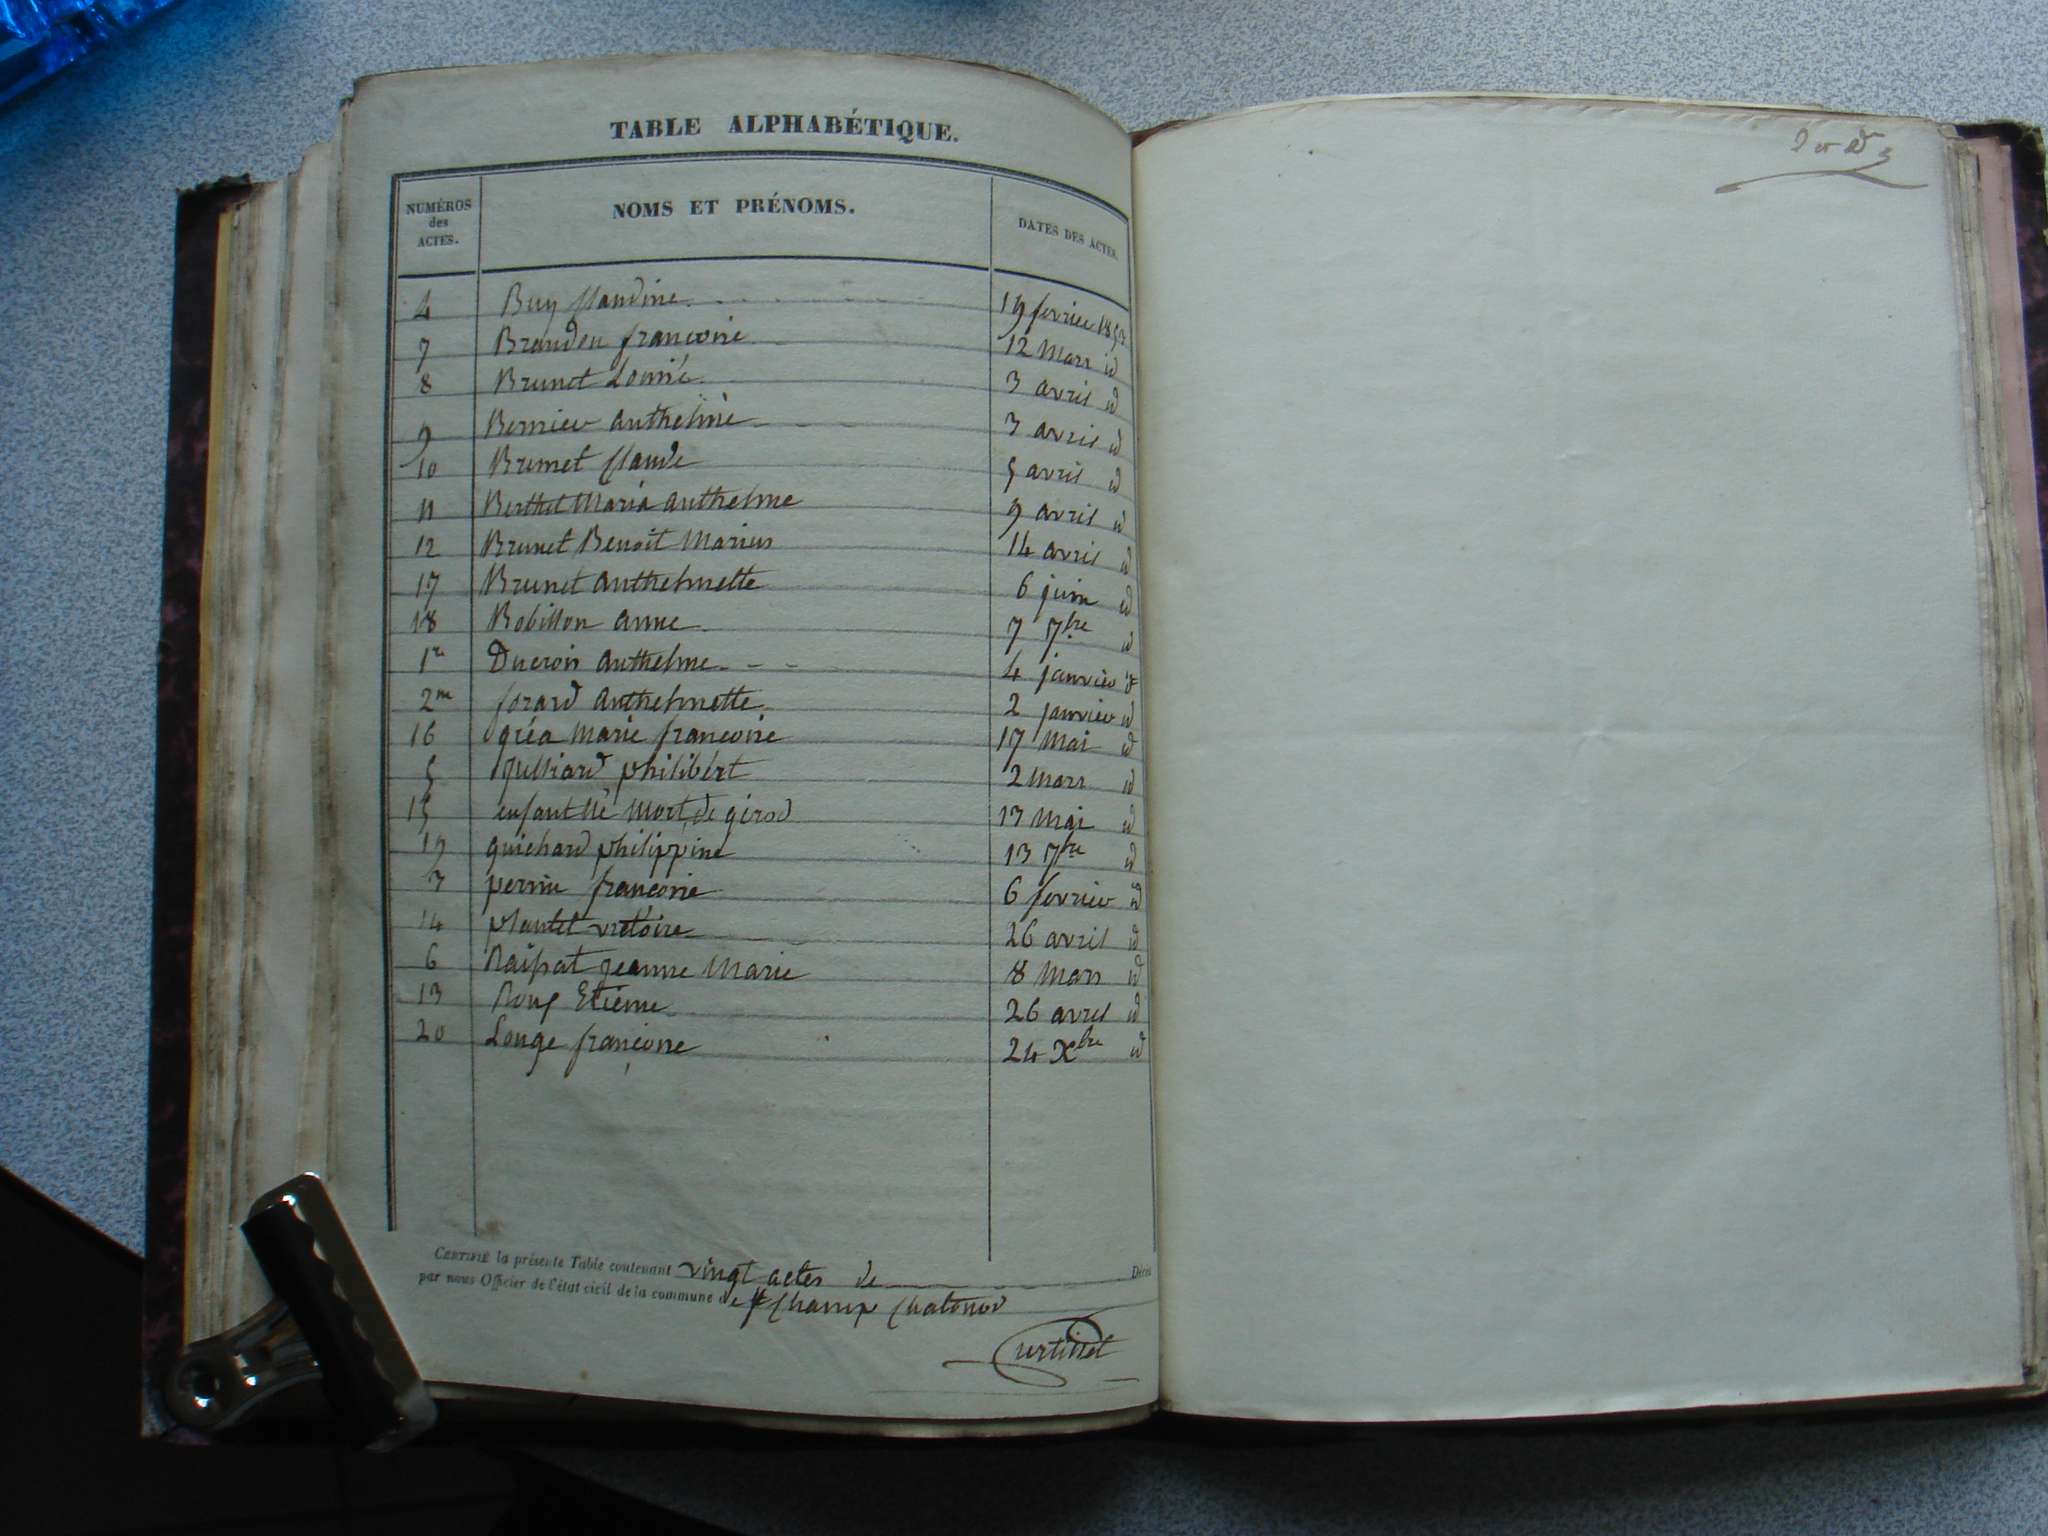 TABLE ALPHABÉTIQUE.
NUMÉROS des ACTES. NOMS ET PRÉNOMS. DATES DES ACTES.
4 Buy Claudine 19 fevrier 1852
7 francoise 12 Mars id
8 Brunet Louise 3 avril id
9 Bernier anthelme 3 avril id
10 Brunet Claude 5 avril id
11 Berthet Maria anthelme 9 avril id
12 Brunet Benoit Marius 14 avril id
17 Brunet anthelmette 6 juin id
18 Robillon anne 7 7bre id
1er Ducrois anthelme 4 janvier id
2me forard anthelmette 2 janvier id
16 gréa Marie francoise 17 Mai id
5 Julliard philibert 2 Mars id
15 enfant né mort de girod 13 Mai id
19 guichard philippine 13 7bre id
3 perrin francoise 6 fevrier id
14 plantet victoire 26 avril id
6 Raissat jeanne Marie 8 Mars id
13 Roux Etienne 26 avril id
20 Longe françoise 24 Xbre id
CERTIFIÉ la présente Table contenant vingt actes de Décès
par nous Officier de l'état civil de la commune de St Champ Chatonod
Curtillet